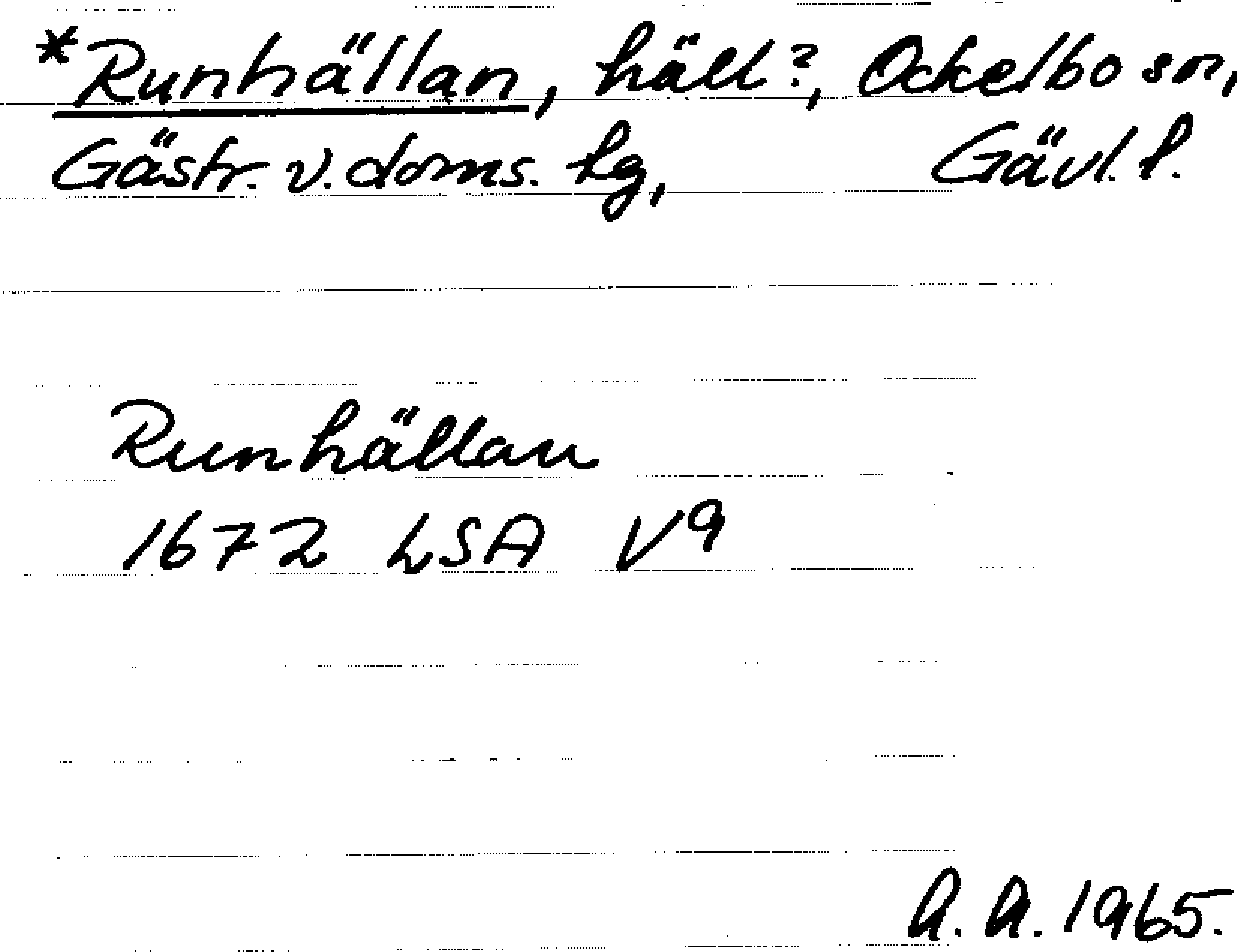 *Runhällan, häll?, Ockelbo sn,
Gästr. v. doms. hg, Gävl. l.
Runhällan
1672 LSA V9
A. A. 1965.